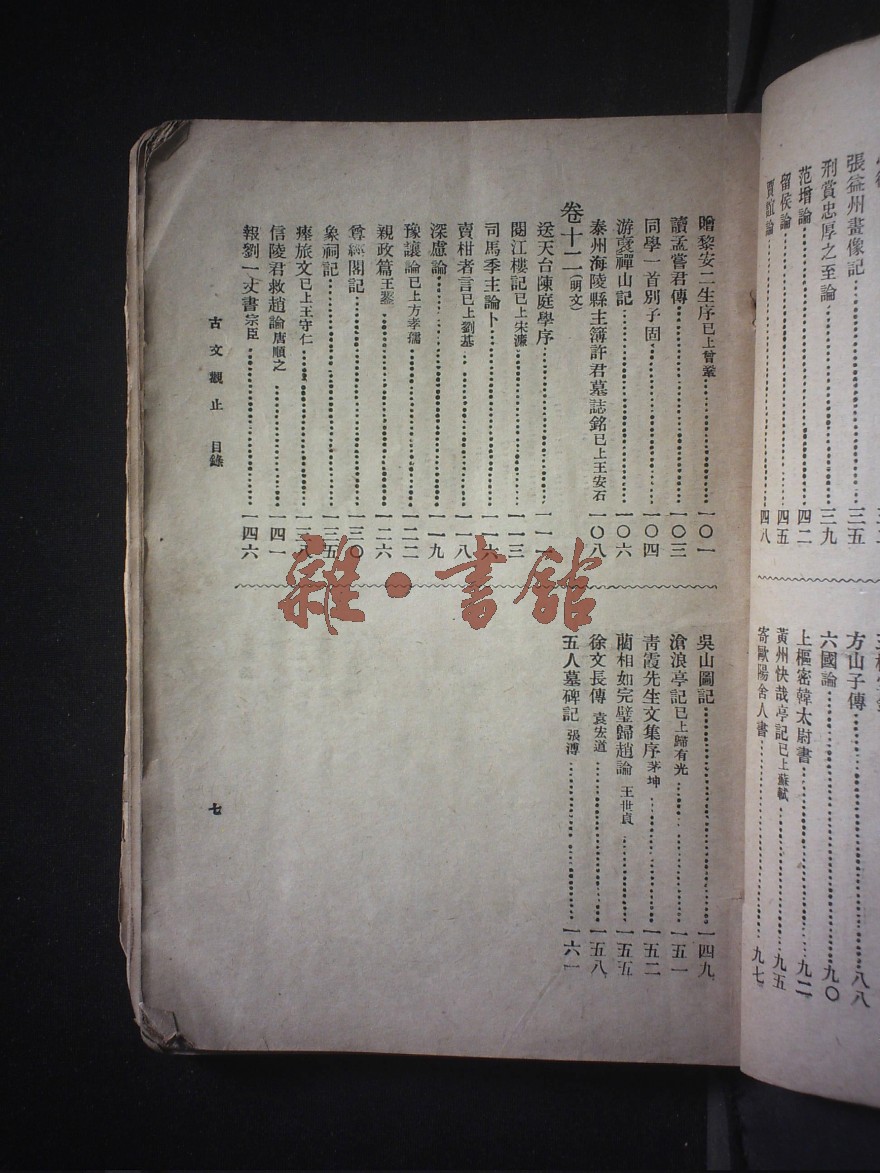 張益州畫像記 三五
刑賞忠厚之至論 三九
范增論 四二
留侯論 四五
賈誼論 四八
方山子傳 八八
六國論 九〇
上樞密韓太尉書 九二
黃州快哉亭記已上蘇轍 九五
寄歐陽舍人書 九七
贈黎安二生序已上曾鞏 一〇一
讀孟嘗君傳 一〇三
同學一首別子固 一〇四
游褒禪山記 一〇六
泰州海陵縣主簿許君墓誌銘已上王安石 一〇八
卷十二(明文)
送天台陳庭學序 一一一
閱江樓記已上宋濂 一一三
司馬季主論卜 一一六
賣柑者言已上劉基 一一八
深慮論 一一九
豫讓論已上方孝孺 一二二
親政篇王鏊 一二六
尊經閣記 一三〇
象祠記 一三五
瘞旅文已上王守仁 一三八
信陵君救趙論唐順之 一四一
報劉一丈書宗臣 一四六
吳山圖記 一四九
滄浪亭記已上歸有光 一五一
青霞先生文集序茅坤 一五二
藺相如完璧歸趙論 王世貞 一五五
徐文長傳 袁宏道 一五八
五人墓碑記 張溥 一六一
古文觀止 目錄
七
雜·書館